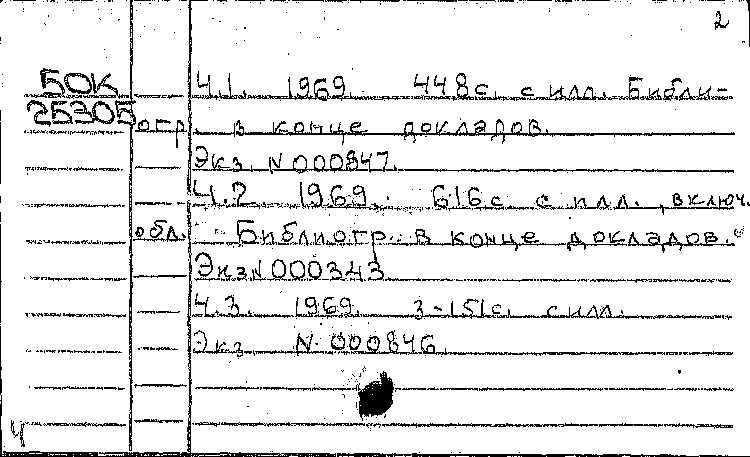 2
50К Ч.1. 1969. 448с. с илл. Библи-
25305 огр. в конце докладов.
Экз. N 000847.
Ч.2. 1969. 616с. с илл., включ.
обл. Библиогр. в конце докладов.
Экз N 000343
Ч.3. 1969. 3-151с. с илл.
Экз. N 000846.
Ч